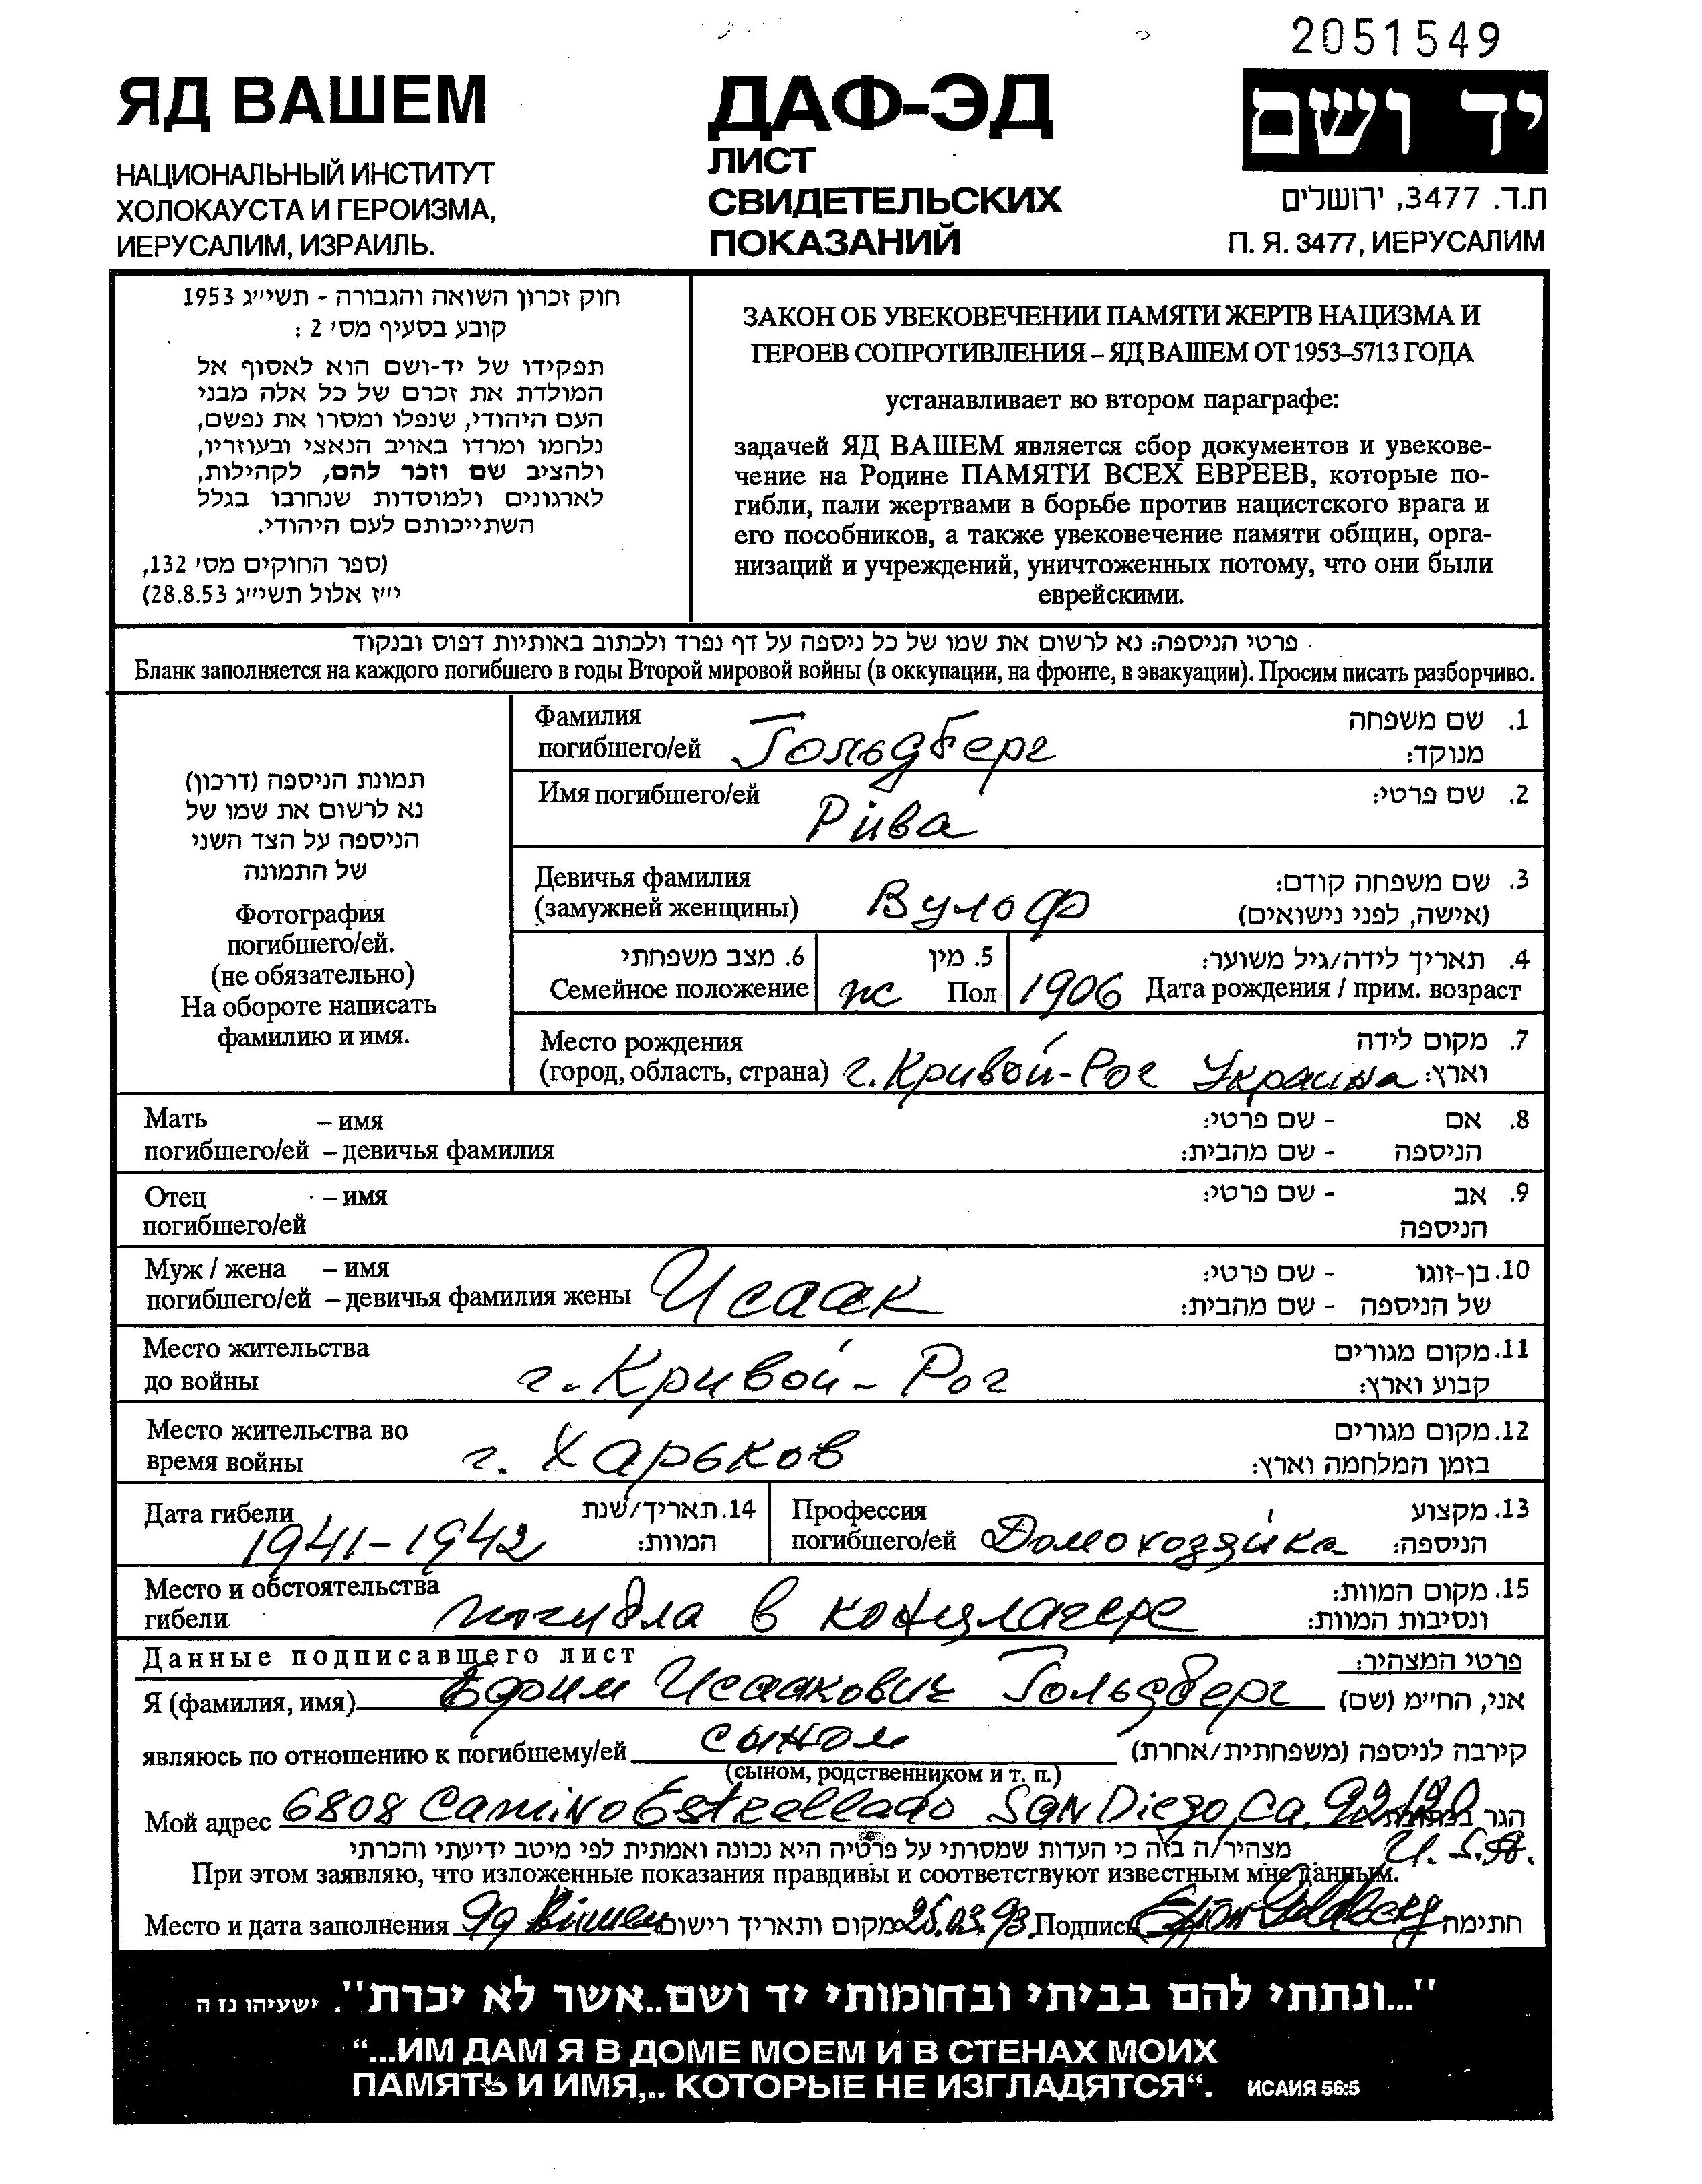 2051549
ЯД ВАШЕМ
НАЦИОНАЛЬНЫЙ ИНСТИТУТ
ХОЛОКАУСТА И ГЕРОИЗМА,
ИЕРУСАЛИМ, ИЗРАИЛЬ.
ДАФ-ЭД
ЛИСТ
СВИДЕТЕЛЬСКИХ
ПОКАЗАНИЙ
יד ושם
ת.ד. 3477, ירושלים
П. Я. 3477, ИЕРУСАЛИМ
חוק זכרון השואה והגבורה - תשי״ג 1953
קובע בסעיף מס׳ 2 :
תפקידו של יד-ושם הוא לאסוף אל
המולדת את זכרם של כל אלה מבני
העם היהודי, שנפלו ומסרו את נפשם,
נלחמו ומרדו באויב הנאצי ובעוזריו,
ולהציב שם וזכר להם, לקהילות,
לארגונים ולמוסדות שנחרבו בגלל
השתייכותם לעם היהודי.
(ספר החוקים מס׳ 132,
י״ז אלול תשי״ג 28.8.53)
ЗАКОН ОБ УВЕКОВЕЧЕНИИ ПАМЯТИ ЖЕРТВ НАЦИЗМА И
ГЕРОЕВ СОПРОТИВЛЕНИЯ – ЯД ВАШЕМ ОТ 1953–5713 ГОДА
устанавливает во втором параграфе:
задачей ЯД ВАШЕМ является сбор документов и увекове-
чение на Родине ПАМЯТИ ВСЕХ ЕВРЕЕВ, которые по-
гибли, пали жертвами в борьбе против нацистского врага и
его пособников, а также увековечение памяти общин, орга-
низаций и учреждений, уничтоженных потому, что они были
еврейскими.
פרטי הניספה: נא לרשום את שמו של כל ניספה על דף נפרד ולכתוב באותיות דפוס ובנקוד
Бланк заполняется на каждого погибшего в годы Второй мировой войны (в оккупации, на фронте, в эвакуации). Просим писать разборчиво.
תמונת הניספה (דרכון)
נא לרשום את שמו של
הניספה על הצד השני
של התמונה
Фотография
погибшего/ей.
(не обязательно)
На обороте написать
фамилию и имя.
Фамилия 1. שם משפחה
погибшего/ей Гольдберг מנוקד:
Имя погибшего/ей Рива 2. שם פרטי:
Девичья фамилия 3. שם משפחה קודם:
(замужней женщины) Вульф (אישה, לפני נישואים)
6. מצב משפחתי 5. מין 4. תאריך לידה/גיל משוער:
Семейное положение ж Пол 1906 Дата рождения / прим. возраст
Место рождения 7. מקום לידה
(город, область, страна) г. Кривой-Рог Украина וארץ:
Мать – имя 8. אם - שם פרטי:
погибшего/ей – девичья фамилия הניספה - שם מהבית:
Отец – имя 9. אב - שם פרטי:
погибшего/ей הניספה
Муж / жена – имя 10. בן-זוגו - שם פרטי:
погибшего/ей – девичья фамилия жены Исаак של הניספה - שם מהבית:
Место жительства 11. מקום מגורים
до войны г. Кривой-Рог קבוע וארץ:
Место жительства во 12. מקום מגורים
время войны г. Харьков בזמן המלחמה וארץ:
Дата гибели 14. תאריך/שנת Профессия 13. מקצוע
1941-1942 המוות: погибшего/ей Домохозяйка הניספה:
Место и обстоятельства 15. מקום המוות:
гибели погибла в концлагере ונסיבות המוות:
Данные подписавшего лист פרטי המצהיר:
Я (фамилия, имя) Ефим Исаакович Гольдберг אני, החי״מ (שם)
являюсь по отношению к погибшему/ей сыном קירבה לניספה (משפחתית/אחרת)
(сыном, родственником и т. п.)
Мой адрес 6808 Camino Estrellado San Diego, Ca. 92120 הגר
מצהיר/ה בזה כי העדות שמסרתי על פרטיה היא נכונה ואמתית לפי מיטב ידיעתי והכרתי
При этом заявляю, что изложенные показания правдивы и соответствуют известным мне данным.
Место и дата заполнения Яд Вашем מקום ותאריך רישום Подпись Goldberg חתימה
״...ונתתי להם בביתי ובחומותי יד ושם..אשר לא יכרת״. ישעיהו נז ה
“...ИМ ДАМ Я В ДОМЕ МОЕМ И В СТЕНАХ МОИХ
ПАМЯТЬ И ИМЯ,.. КОТОРЫЕ НЕ ИЗГЛАДЯТСЯ“. ИСАИЯ 56:5